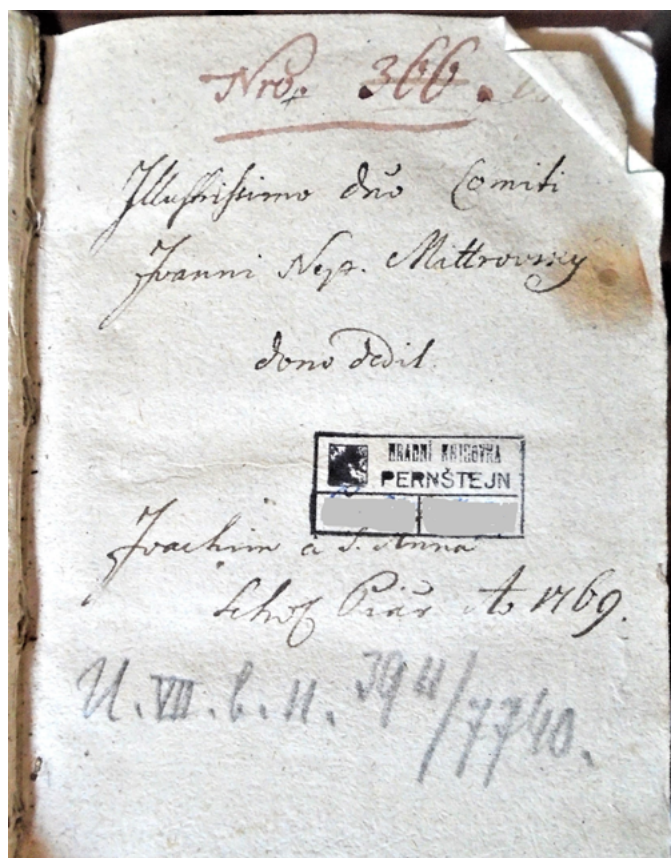 Nrō. 366.
Illustrissimo dn̄o Comiti
Joanni Nep. Mittrovsky
dono dedit
HRADNÍ KNIHOVNA
PERNŠTEJN
Joachim à S. Anna
Schol. Piar. Aō 1769.
U. VII. b. 11. 39 11/7740.